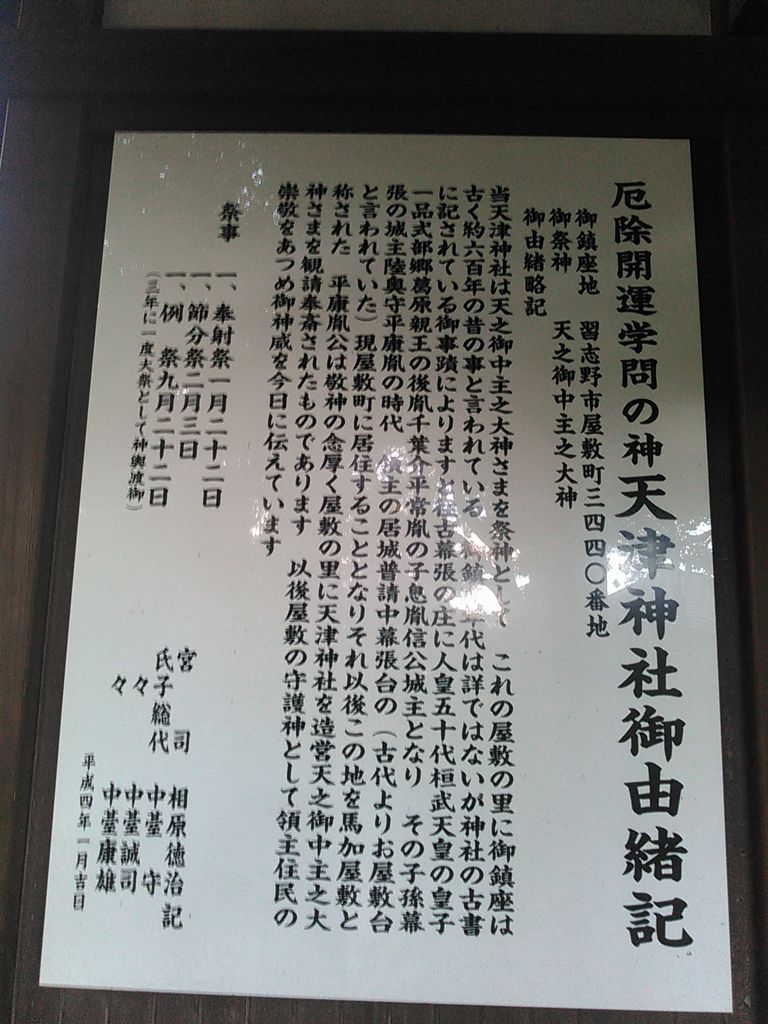 厄除開運学問の神天津神社御由緒記
御鎮座地 習志野市屋敷町三四四〇番地
御祭神 天之御中主之大神
御由緒略記
当天津神社は天之御中主之大神さまを祭神として これの屋敷の里に御鎮座は
古く約六百年の昔の事と言われている 御鎮 年代は詳ではないが神社の古書
に記されている御事蹟によりますと往古幕張の庄に人皇五十代桓武天皇の皇子
一品式部郷葛原親王の後胤千葉介平常胤の子息胤信公城主となり その子孫幕
張の城主陸奥守平康胤の時代 領主の居城普請中幕張台の（古代よりお屋敷台
と言われていた）現屋敷町に居住することとなりそれ以後この地を馬加屋敷と
称された 平康胤公は敬神の念厚く屋敷の里に天津神社を造営天之御中主之大
神さまを観請奉斎されたものであります 以後屋敷の守護神として領主住民の
崇敬をあつめ御神威を今日に伝えています
祭事
一、奉射祭一月二十二日
一、節分祭二月三日
一、例 祭九月二十二日
（三年に一度大祭として神輿渡御）
宮 司 相原徳治記
氏子総代 中臺 守
々 中臺誠司
々 中臺康雄
平成四年一月吉日